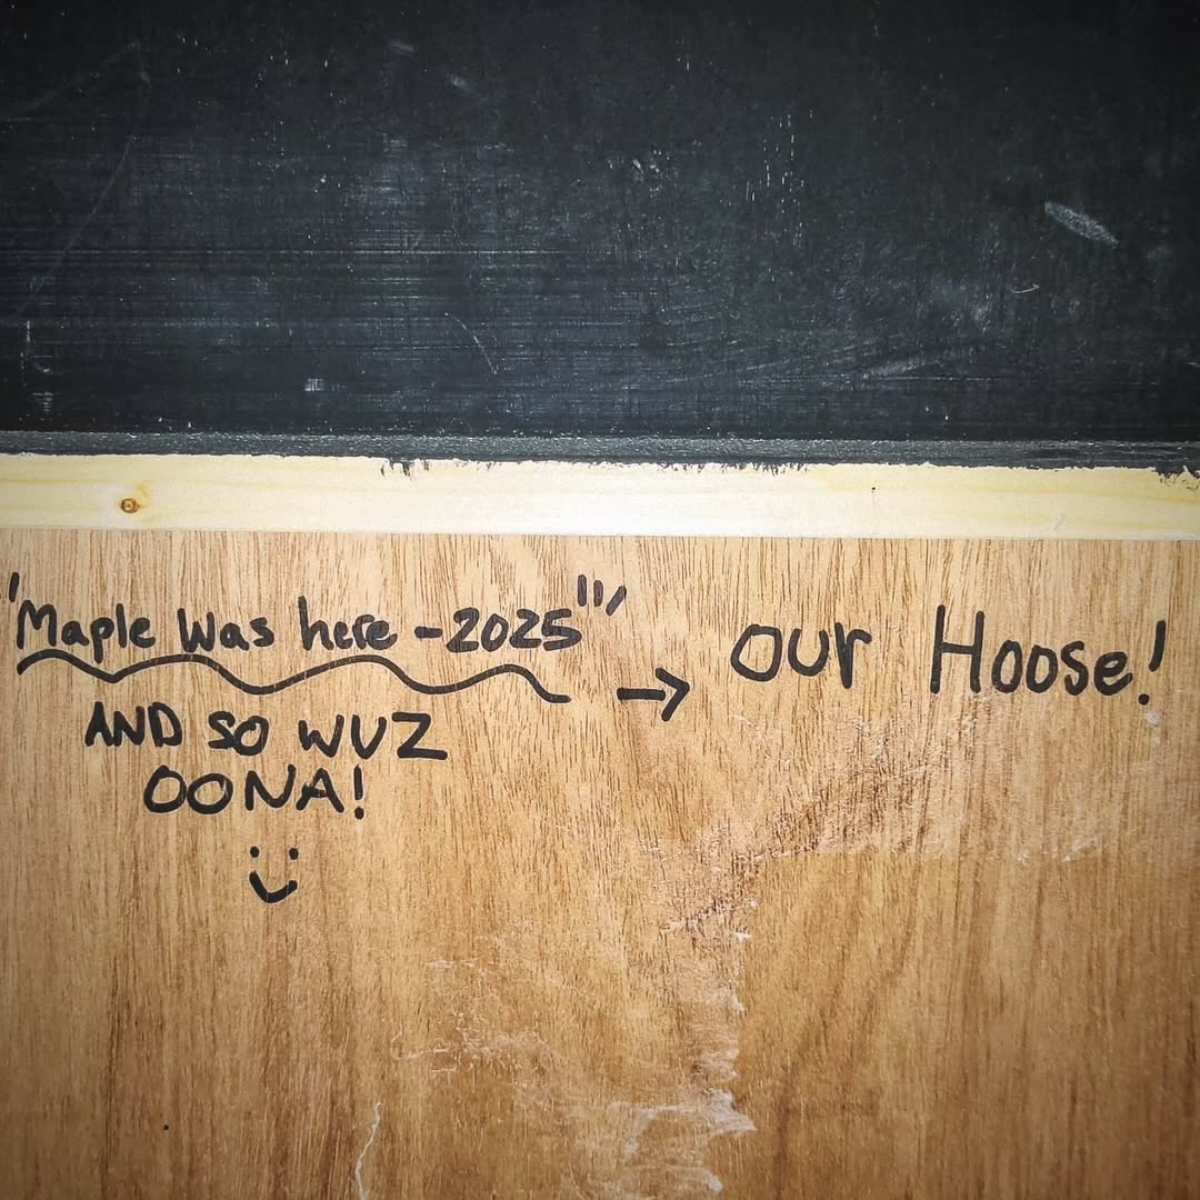 "Maple Was here - 2025"
AND SO WUZ
OONA!
→ our Hoose!